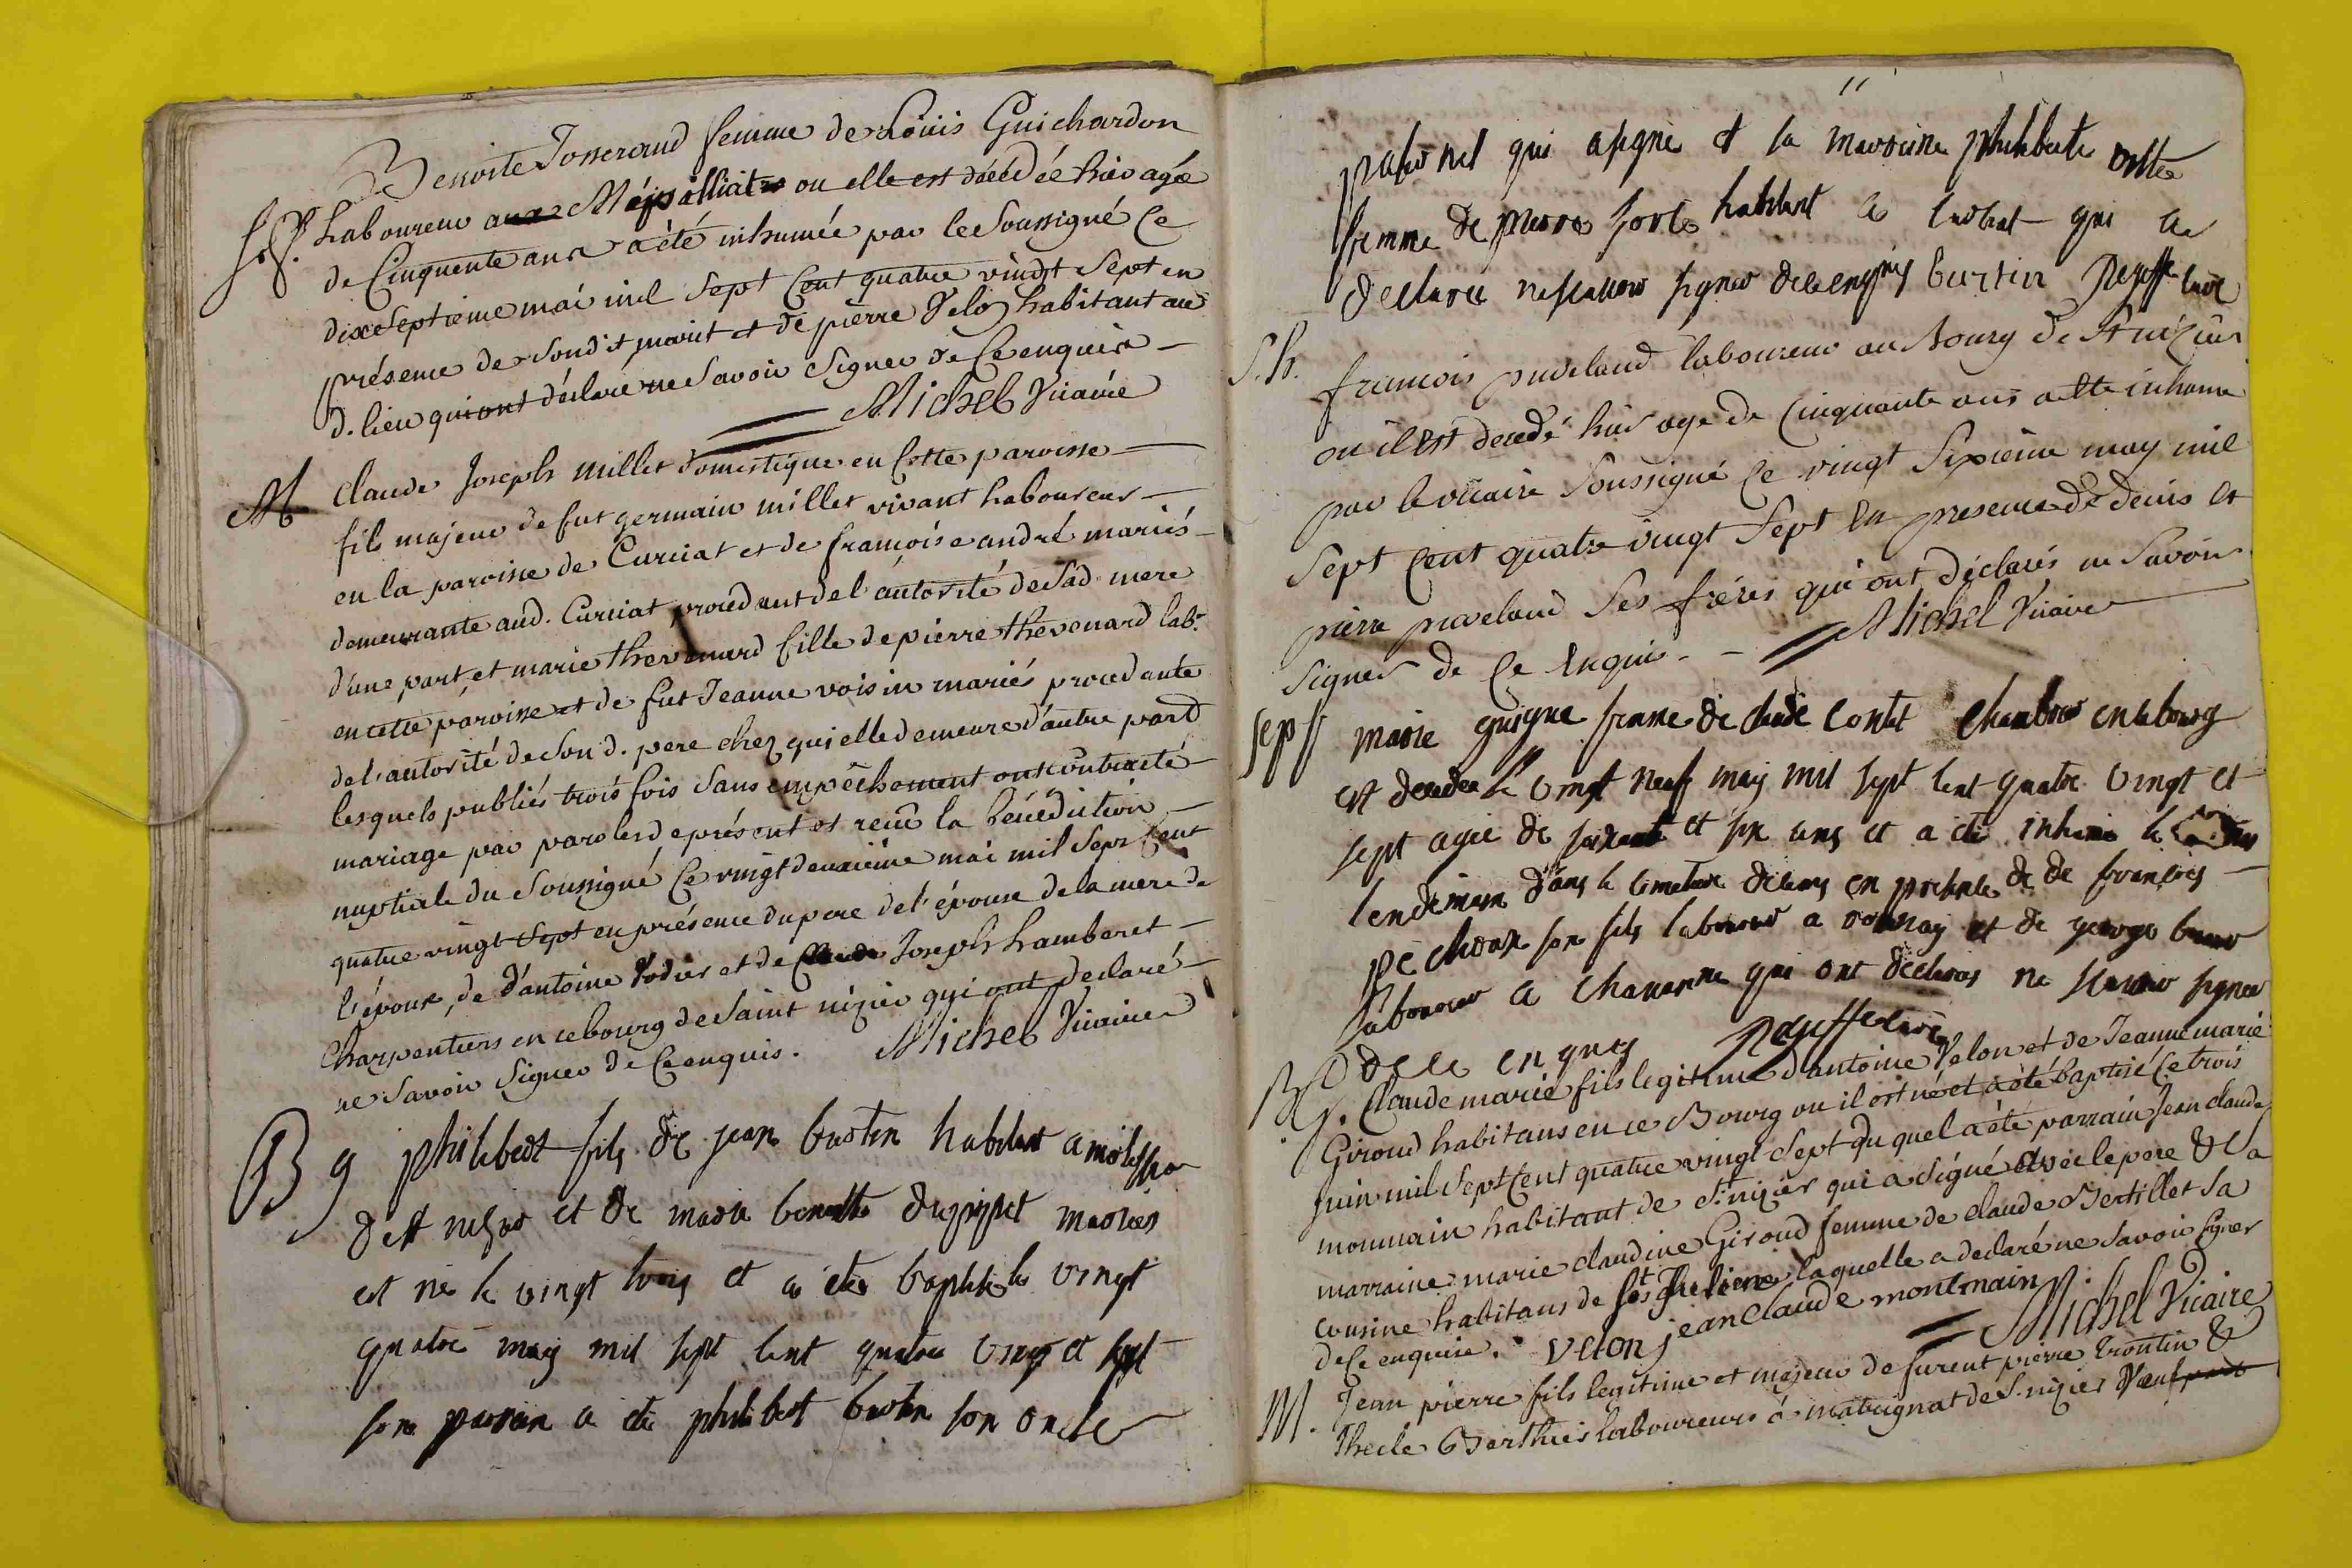 Benoite Josserand femme de Louis Guichardon
S.f. Laboureur aux Mépilliats ou elle est décédée hier agée
de Cinquente ans a été inhumée par le Soussigné Ce
dixeseptieme mai mil Sept Cent quatre vingt Sept en
présence de Sondit marit et de pierre Velon habitant au
d. lieu qui ont déclaré ne Savoir Signer de Ce enquis
Michel Vicaire
M. Claude Joseph Millet domestique en Cette paroisse
fils majeur de fut germain millet vivant Laboureur
en la paroisse de Curciat et de francoise andré mariés
demeurante aud. Curciat procedant de l'autorité de Sad. mere
d'une part, et marie thevenard fille de pierre thevenard lab.r
en cette paroisse et de fut Jeanne voisin mariés procedante
de l'autorité de Son d. pere chez qui elle demeure d'autre part
lesquels publiés trois fois Sans empêchement ont contracté
mariage par paroles de présent et reçu la bénédiction
nuptiale du Soussigné Ce vingt deuxieme mai mil Sept Cent
quatre vingt Sept en présence du pere de l'épouse de la mere de
l'époux, de d'antoine Vodier et de Claude Joseph Lamberet
Charpentiers en ce bourg de Saint nizier qui ont declaré
ne Savoir Signer de Ce enquis. Michel Vicaire
B g philibert fils de jean burtin habitant a
de st nizier et de marie benoitte dupupet mariés
est né le vingt trois et a été baptisé le vingt
quatre may mil sept cent quatre vingt et sept
son parrain a été philibert burtin son oncle
11
paternel qui a signé et la marraine philiberte
femme de pierre habitant a qui a
declaré ne scavoir signer de ce enquis burtin Peyssse curé
S.h. francois puveland laboureur au Bourg de St nizier
ou il est decedé hier agé de Cinquante ans a ette inhumé
par le vicaire Soussigné Ce vingt Sixieme may mil
Sept Cent quatre vingt Sept En presence de denis et
pierre puveland Ses freres qui ont déclarés ne Savoir
Signer de Ce Enquis - - Michel Vicaire
sep f marie guigne femme de claude contet en ce bourg
est decedee le vingt neuf may mil sept cent quatre vingt et
sept agée de soixante et six ans et a été inhumé le
lendemain dans le cimetiere de ceans en presence de de francois
pechoux son fils laboureur a et de george
laboureur a Chavanne qui ont declarés ne scavoir signer
de ce enquis curé
B.g. Claude marie fils legitime d'antoine Velon et de Jeanne marie
Giroud habitans en ce Bourg ou il est né et a été baptisé Ce trois
juin mil Sept Cent quatre vingt Sept du quel a été parrain Jean claude
monmain habitant de St. nizier qui a Signé avec le pere & Sa
marraine marie claudine Giroud femme de claude Bertillet Sa
cousine habitans de laquelle a declaré ne Savoir Signer
de Ce enquise. velon jean claude montmain P. Michel Vicaire
M. Jean pierre fils legitime et majeur de furent pierre trontin &
thecle Berthier laboureurs à matrignat de S. nizier